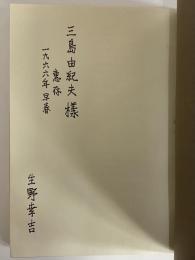 三島由紀夫様
恵存
一九六六年早春
生野幸吉